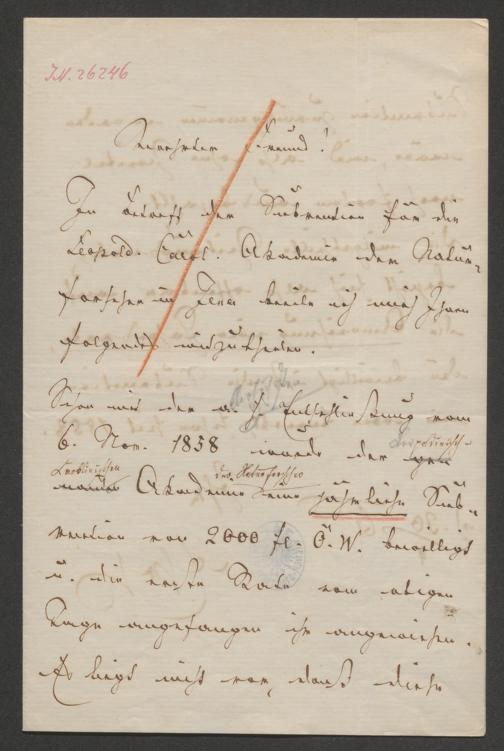 I.N. 26246
Verehrter Freund!
In Betreff der Subvention für die
Leopold. Carol. Akademie der Natur-
forscher in Jena beeile ich mich Ihnen
Folgendes mitzutheilen.
Schon mit der a. h. Entschließung vom
6. Nov. 1858 wurde der
Akademie der Naturforscher eine jährliche Sub-
vention von 2000 fl. Ö. W. bewilligt
u. die erste Rate vom obigen
Tage angefangen ihr angewiesen.
Es liegt nicht vor, daß diese